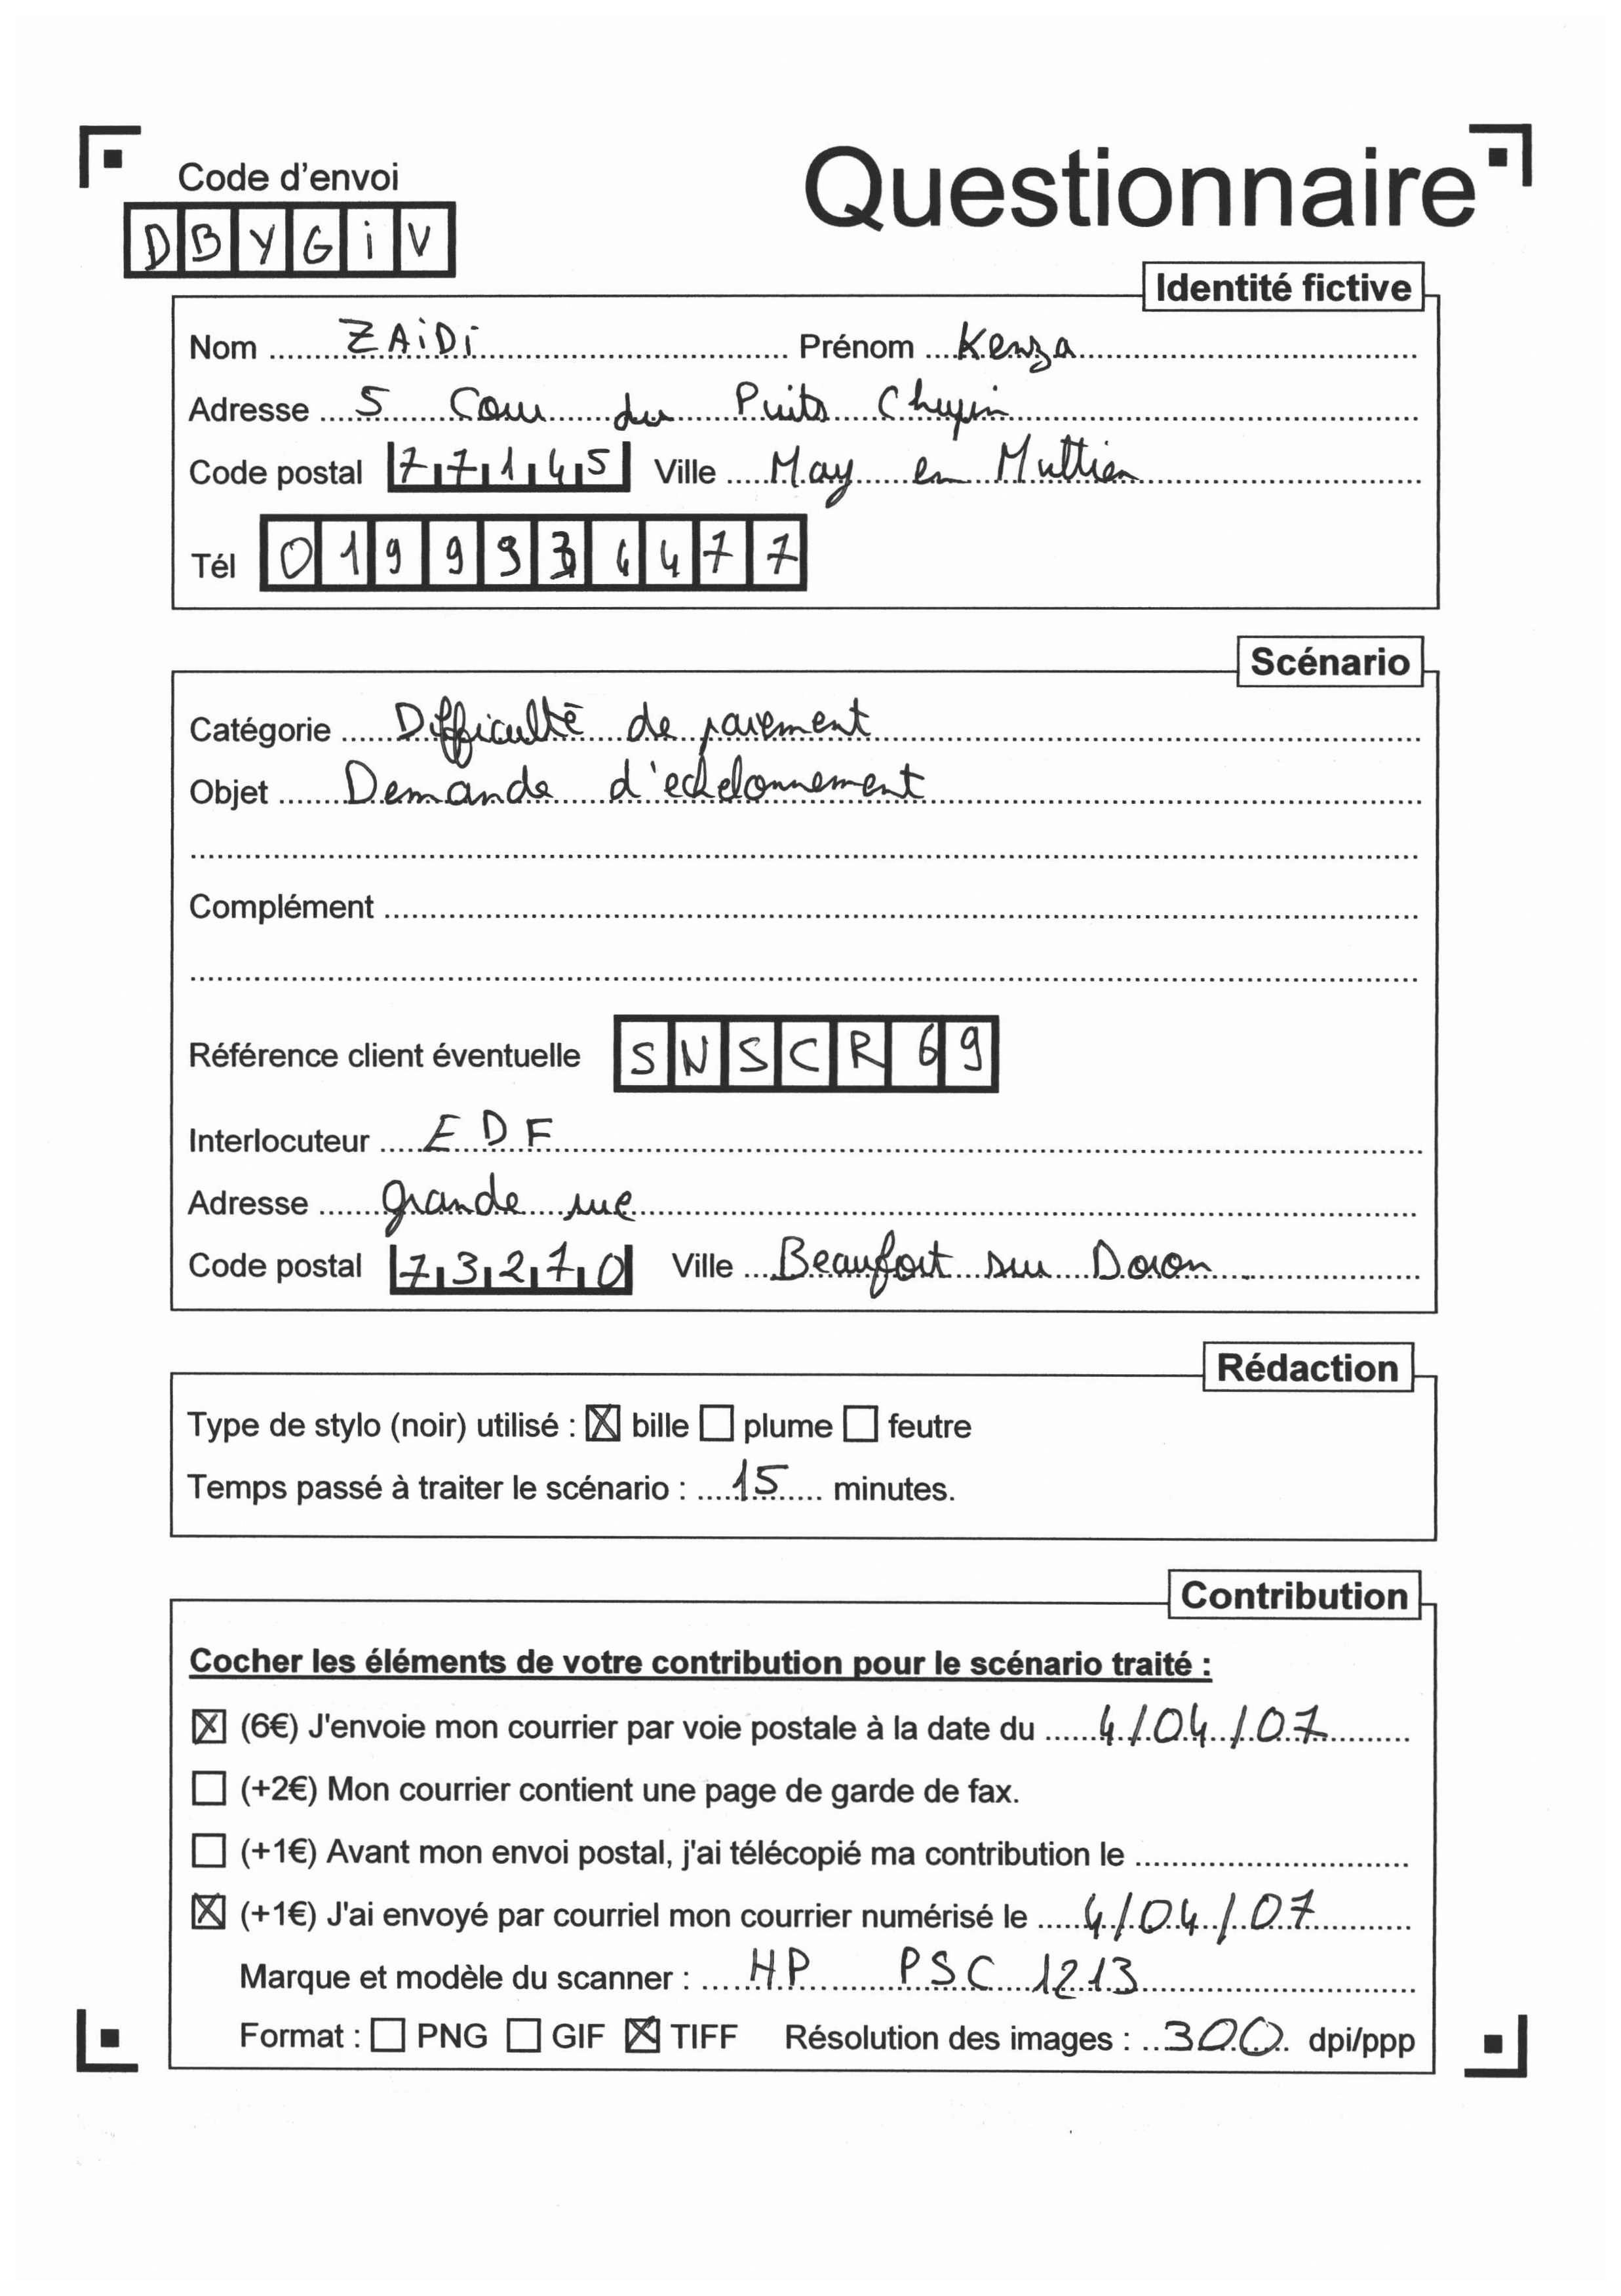 Questionnaire
Code d'envoi
DBYGiV
Identité fictive
Nom ZAiDi Prénom Kenza
Adresse 5 Cour du Puits Chupin
Code postal 77145 Ville May en Multien
Tél 01999 4477
Scénario
Catégorie Difficulté de paiement
Objet Demande d'echelonnement
Complément
Référence client éventuelle SNSCR69
Interlocuteur EDF
Adresse grande rue
Code postal 73270 Ville Beaufort sur Doron
Rédaction
Type de stylo (noir) utilisé : ☒ bille ☐ plume ☐ feutre
Temps passé à traiter le scénario : 15 minutes.
Contribution
Cocher les éléments de votre contribution pour le scénario traité :
☒ (6€) J'envoie mon courrier par voie postale à la date du 4/04/07
☐ (+2€) Mon courrier contient une page de garde de fax.
☐ (+1€) Avant mon envoi postal, j'ai télécopié ma contribution le
☒ (+1€) J'ai envoyé par courriel mon courrier numérisé le 4/04/07
Marque et modèle du scanner : HP PSC 1213
Format : ☐ PNG ☐ GIF ☒ TIFF Résolution des images : 300 dpi/ppp